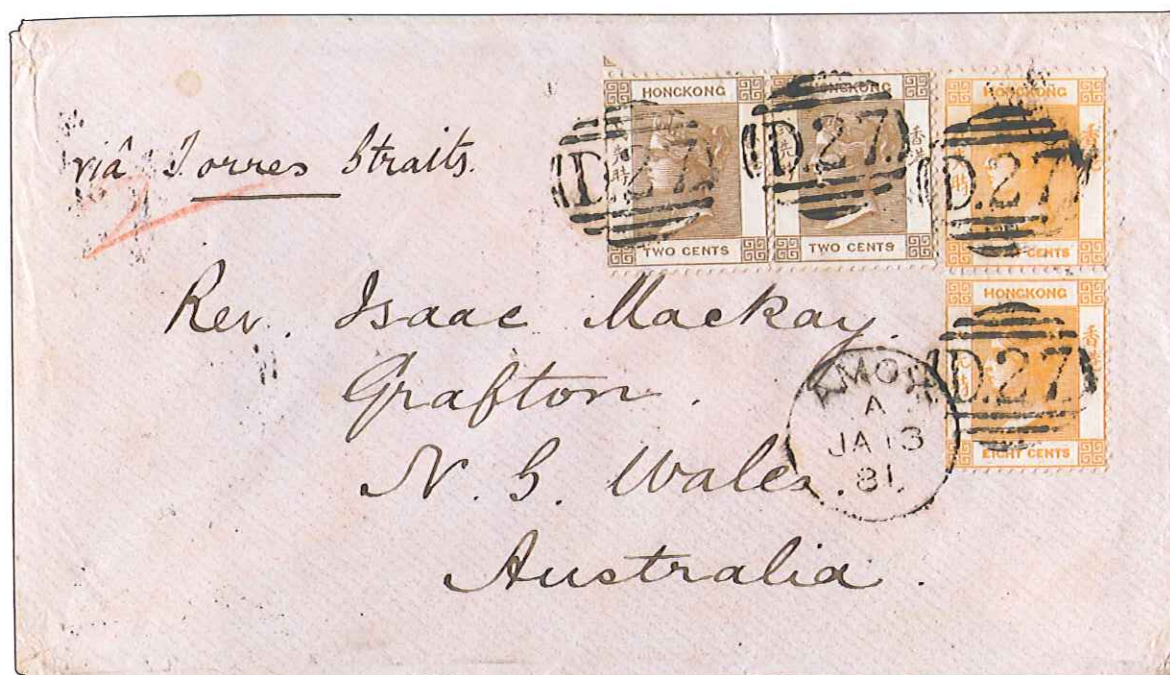 via Torres Straits.
HONGKONG
TWO CENTS
D.27.
HONGKONG
香港
TWO CENTS
D.27.
HONGKONG
香港
CENTS
D.27
HONGKONG
香港
EIGHT CENTS
D.27.
Rev. Isaac Mackay.
Grafton.
N. S. Wales
Australia.
AMOY
A
JA 13
81